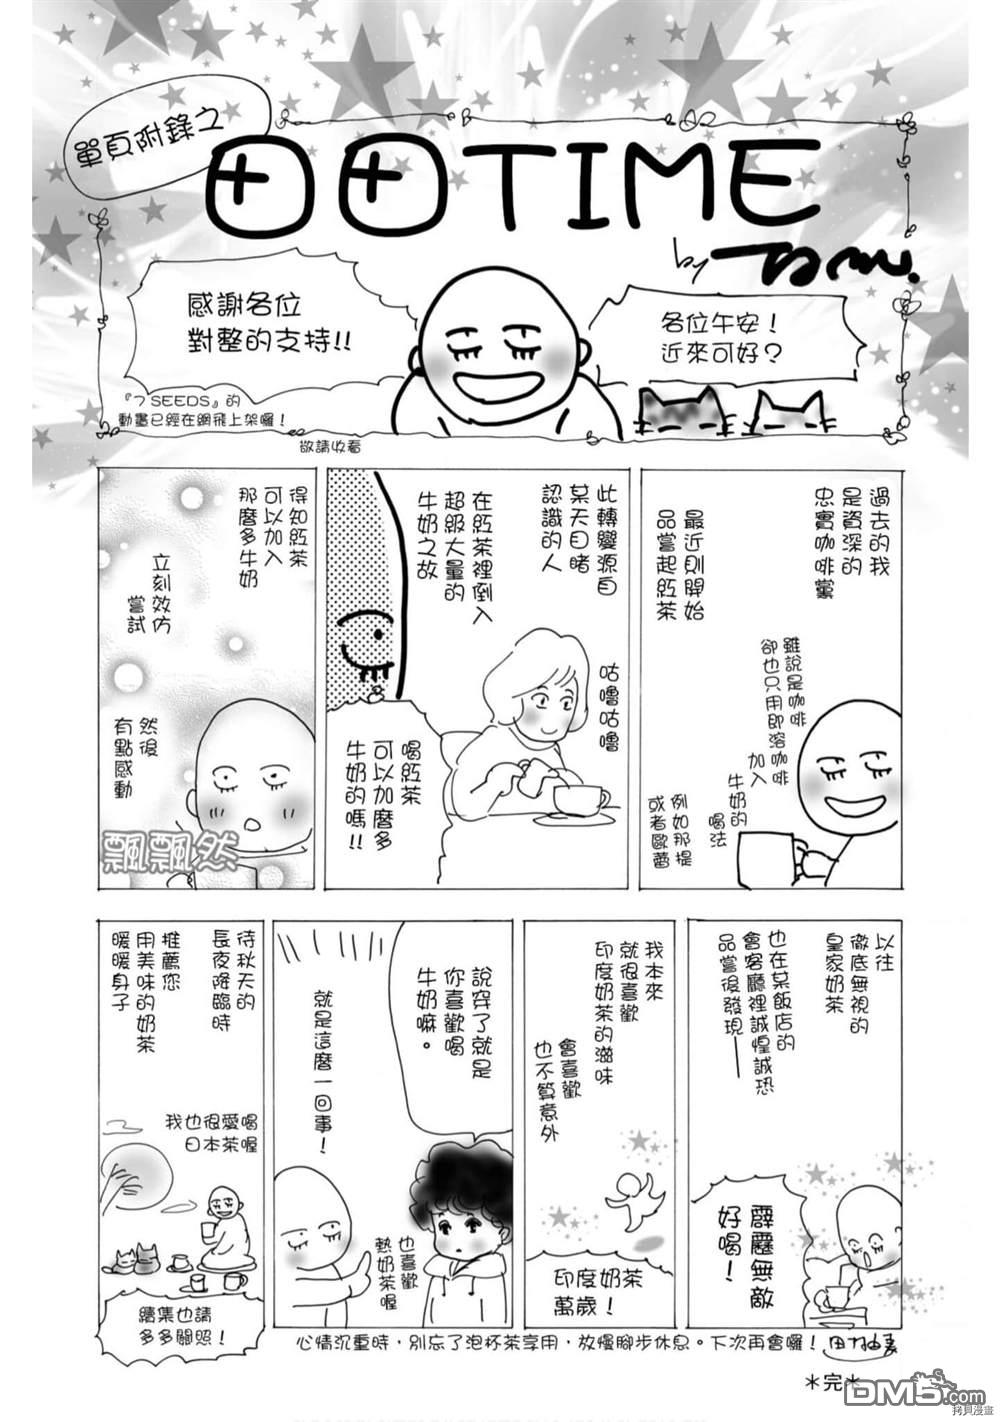 單頁附錄之
田田TIME
by
感謝各位
對整的支持!!
各位午安！
近來可好？
『7 SEEDS』的
動畫已經在網飛上架囉！
敬請收看
過去的我
是資深的
忠實咖啡黨
最近則開始
品嘗起紅茶
雖說是咖啡
卻也只用即溶咖啡
加入
牛奶的
喝法
例如那提
或者歐蕾
此轉變源自
某天目睹
認識的人
在紅茶裡倒入
超級大量的
牛奶之故
咕嚕咕嚕
喝紅茶
可以加麼多
牛奶的嗎!!
得知紅茶
可以加入
那麼多牛奶
立刻效仿
嘗試
然後
有點感動
飄飄然
以往
徹底無視的
皇家奶茶
也在某飯店的
會客廳裡誠惶誠恐
品嘗後發現——
霹靂無敵
好喝！
我本來
就很喜歡
印度奶茶的滋味
會喜歡
也不算意外
印度奶茶
萬歲！
說穿了就是
你喜歡喝
牛奶嘛。
就是這麼一回事！
也喜歡
熱奶茶喔
待秋天的
長夜降臨時
推薦您
用美味的奶茶
暖暖身子
我也很愛喝
日本茶喔
續集也請
多多關照！
心情沉重時，別忘了泡杯茶享用，放慢腳步休息。下次再會囉！
＊完＊
DM5.com
拷貝漫畫